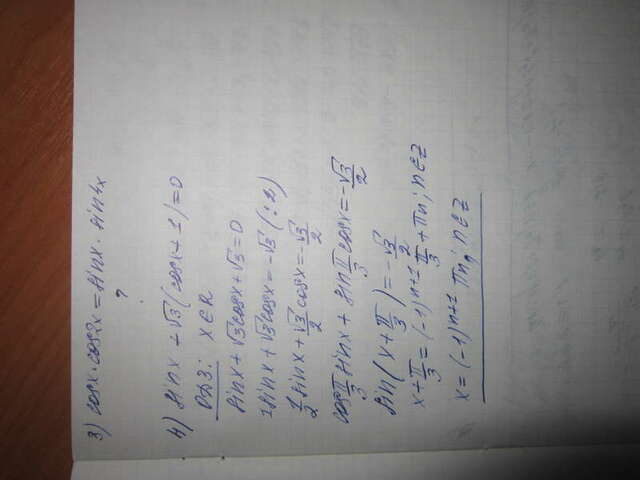 3) cosx·cos2x = sinx·sin4x
?
4) sinx + √3(cosx + 1) = 0
ОДЗ: x∈R
sinx + √3cosx + √3 = 0
1sinx + √3cosx = -√3 (:2)
1/2 sinx + √3/2 cosx = -√3/2
cos π/3 sinx + sin π/3 cosx = -√3/2
sin(x + π/3) = -√3/2
x + π/3 = (-1)ⁿ⁺¹ π/3 + πn; n∈Z
x = (-1)ⁿ⁺¹ πn; n∈Z